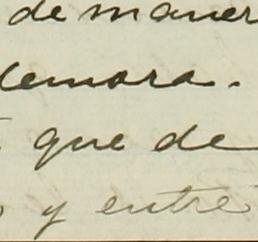 de maner
demora.
que de
y entre